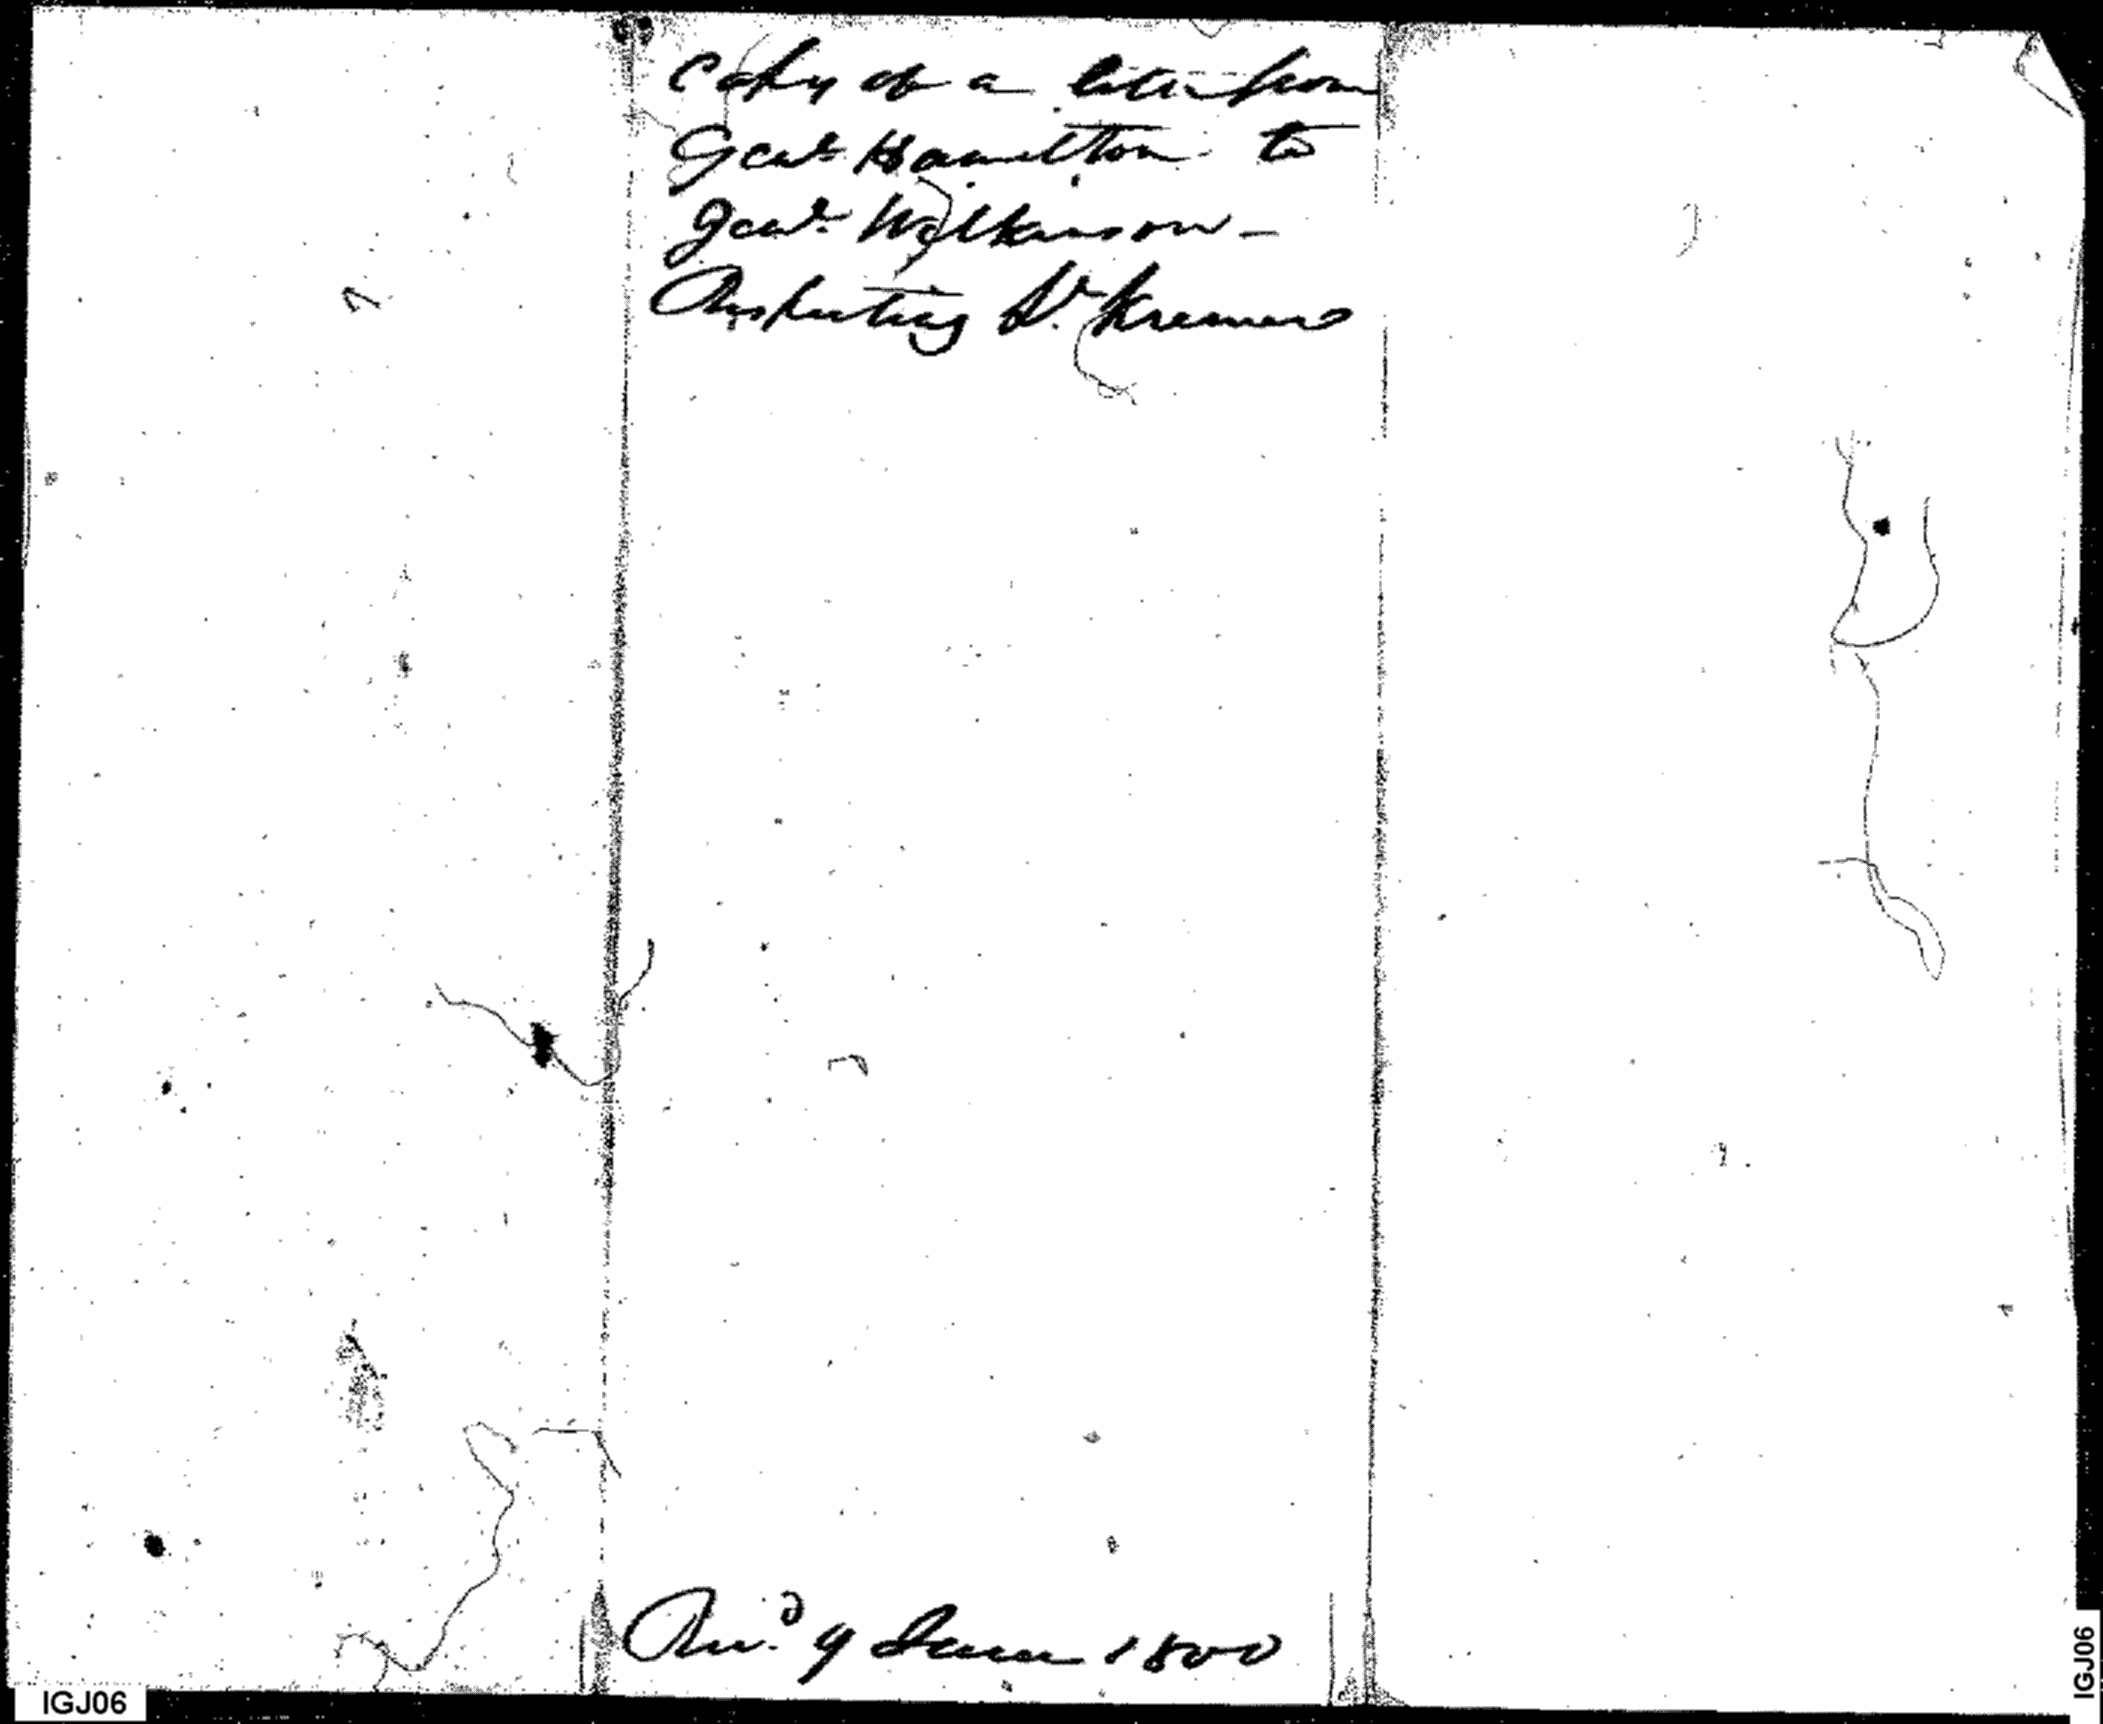 Copy of a letter from
Genl. Hamilton to
Genl. Wilkinson -
Respecting Dr. Kremer
Recd. 9 June 1800
IGJ06
IGJ06